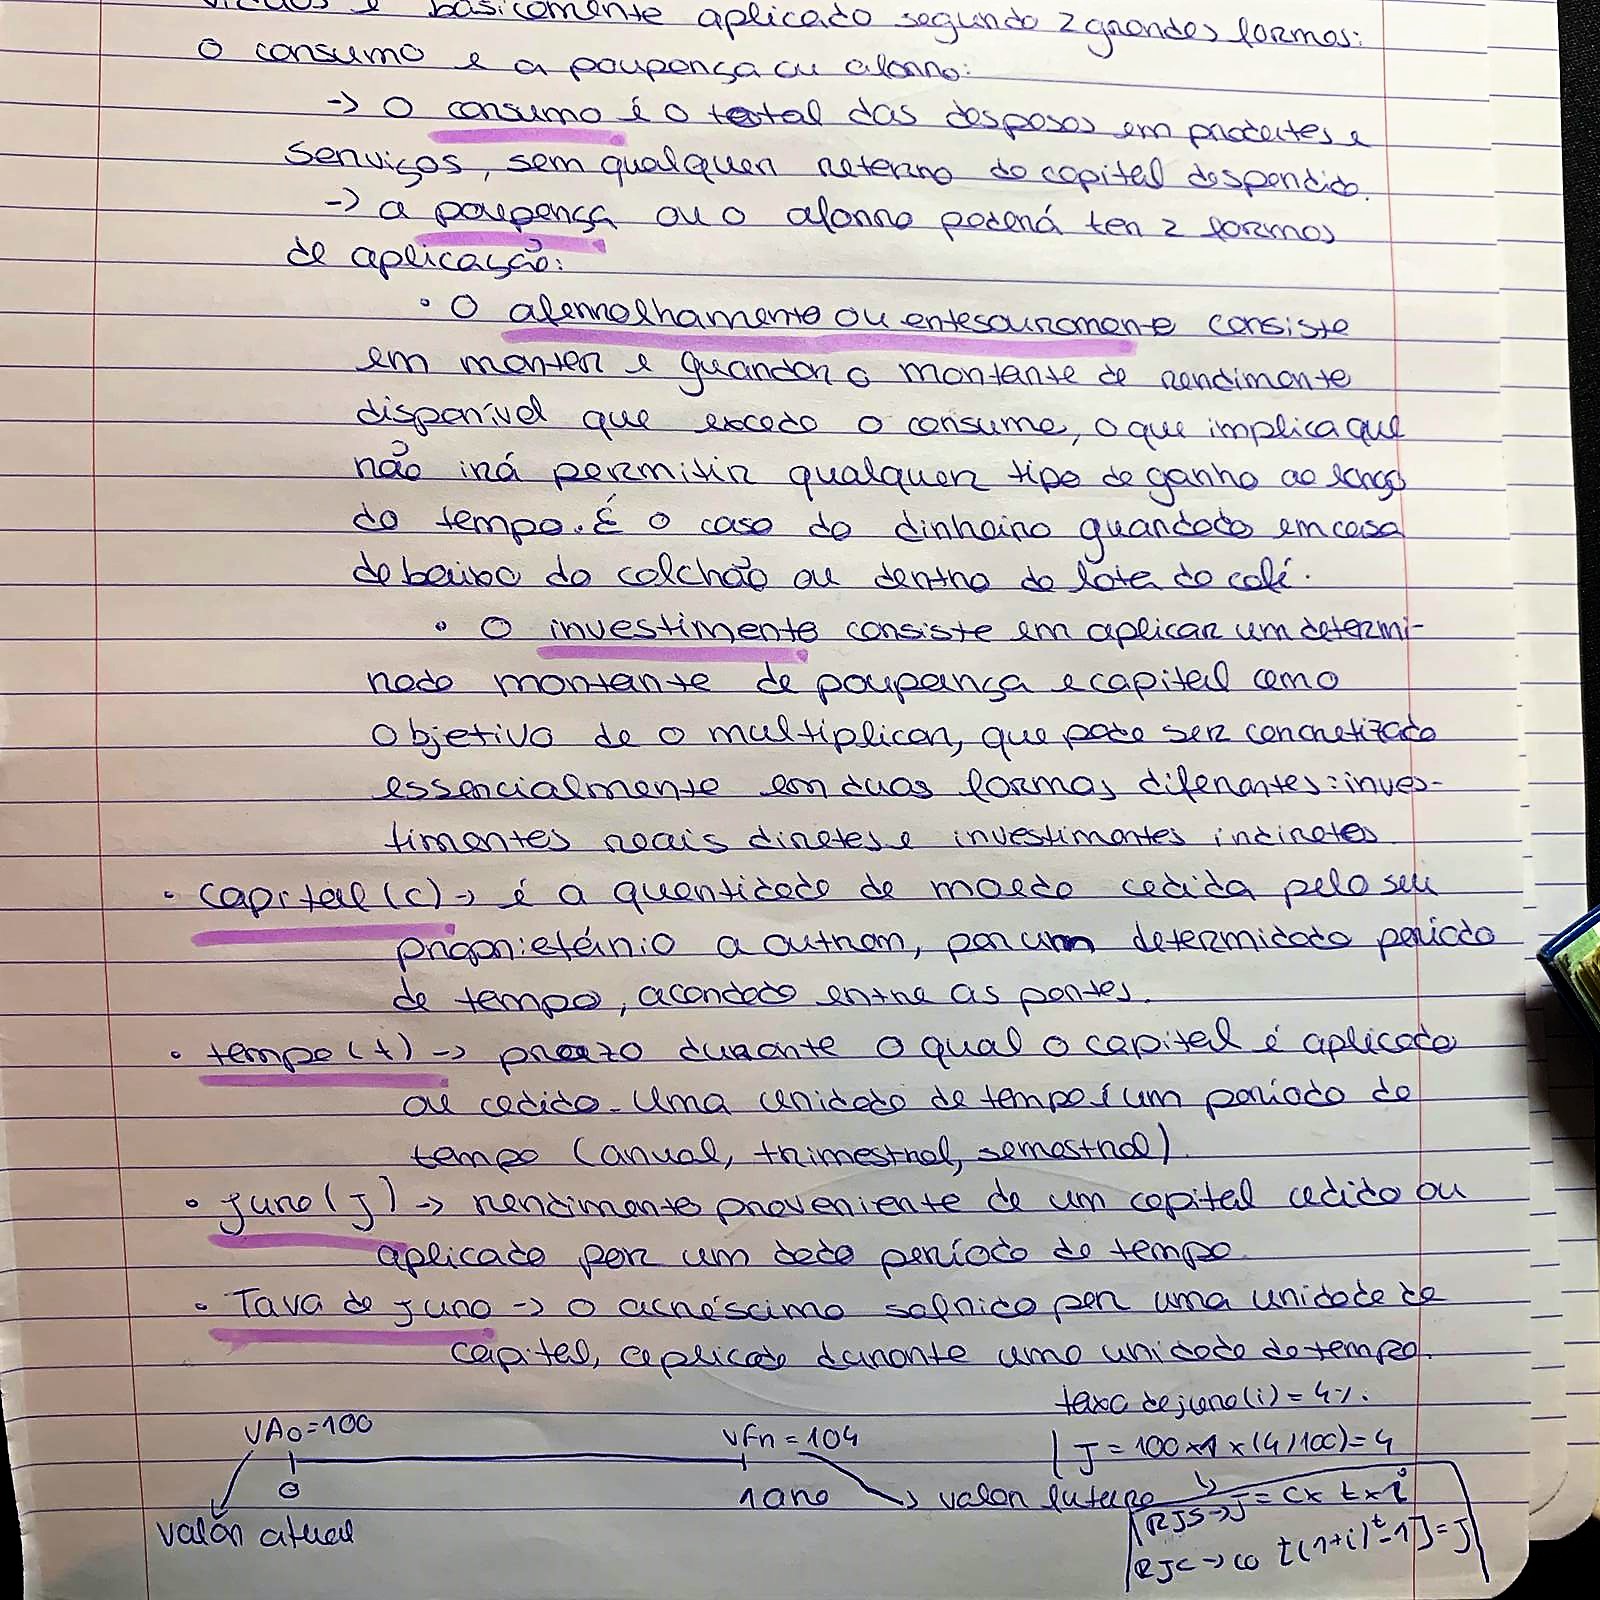 é basicamente aplicado segundo 2 grandes formas:
O consumo e a poupança ou aforro:
-> O consumo é o total das despesas em produtos e
serviços, sem qualquer retorno do capital despendido.
-> a poupança ou o aforro poderá ter 2 formas
de aplicação:
• O aferrolhamento ou entesouramento consiste
em manter e guardar o montante de rendimento
disponível que excede o consumo, o que implica que
não irá permitir qualquer tipo de ganho ao longo
do tempo. É o caso do dinheiro guardado em casa
debaixo do colchão ou dentro da lata do café.
• O investimento consiste em aplicar um determi-
nado montante de poupança e capital como
objetivo de o multiplicar, que pode ser concretizado
essencialmente em duas formas diferentes: inves-
timentos reais diretos e investimentos indiretos.
• Capital (C) -> é a quantidade de moeda cedida pelo seu
proprietário a outrem, por um determidado período
de tempo, acordado entre as partes.
• tempo (t) -> prazo durante o qual o capital é aplicado
ou cedido. Uma unidade de tempo é um período de
tempo (anual, trimestral, semestral)
• juro (J) -> rendimento proveniente de um capital cedido ou
aplicado por um dado período de tempo.
• Taxa de juro -> o acréscimo sofrido por uma unidade de
capital, aplicado durante uma unidade de tempo.
taxa de juro (i) = 4%.
VA0 = 100 VFn = 104 J = 100 x 1 x (4/100) = 4
0 1 ano -> valor futuro RJS -> J = C x t x i
valor atual RJC -> C0 [(1+i)^t - 1] = J